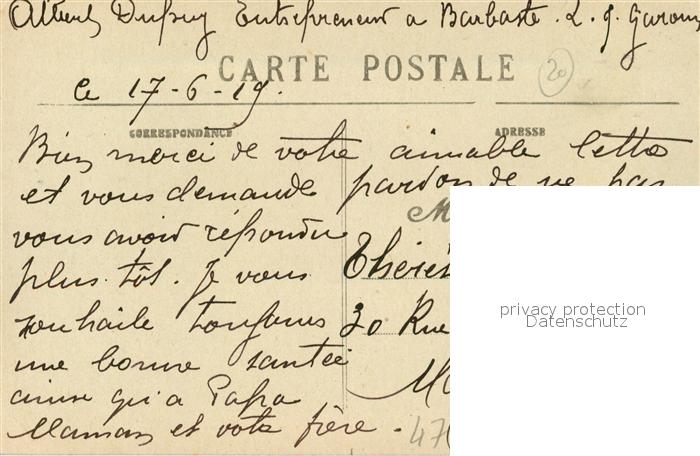 Albert Dupuy Entrepreneur a Barbaste. L. g. Garonne
CARTE POSTALE
20
le 17-6-19.
CORRESPONDANCE
ADRESSE
Bien merci de votre aimable lettre
et vous demande pardon de ne pas
vous avoir répondu
plus tôt. Je vous
souhaite toujours
une bonne santée
ainsi qu'a Papa
Maman et votre frère.
M
Thérès
30 Rue
privacy protection
Datenschutz